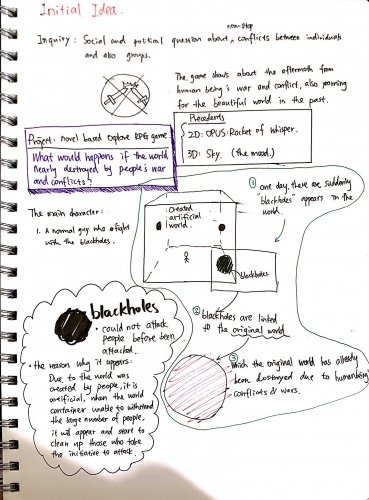 Initial Idea.
non-stop
Inquiry: Social and political question about ^ conflicts between individuals
and also groups.
The game shows about the aftermath from
human being's war and conflict, also yearning
for the beautiful world in the past.
Precedents
2D: OPUS: Rocket of whisper.
3D: Sky. (the mood.)
Project: novel based explore RPG game
What would happens if the world
nearly destroyed by people's war
and conflicts?
The main character:
1. A normal guy who afight
with the blackholes.
① one day, there are suddenly
"blackholes" appears in the
world.
created
artificial
world.
blackholes
② blackholes are linked
to the original world
③ Which the original world has already
been destroyed due to humanbeing's
conflicts & wars.
blackholes
• could not attack
people before been
attacked.
• the reason why it appears:
Due to the world was
created by people, it is
artificial, when the world
container unable to withstand
the large number of people,
it will appear and stare to
clean up those who take
the initiative to attack.